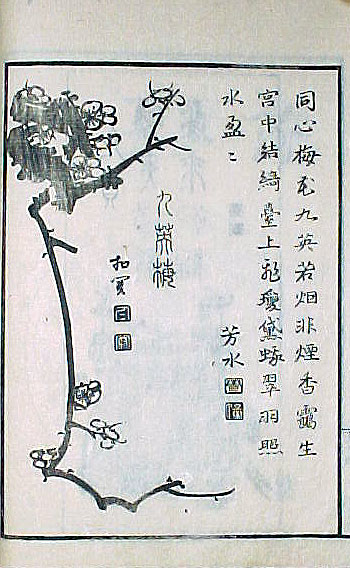 同心梅花九英若烟非煙香靄生
宮中結綺臺上飛瓊黛蛾翠羽照
水盈〻
芳水
九英梅